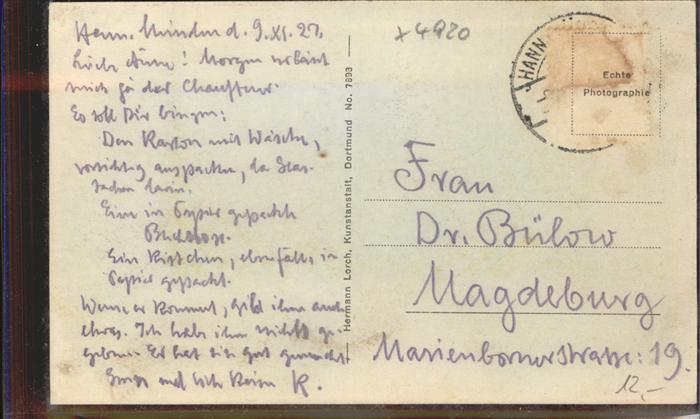 Hann. Münden d. 9.XI.27.
Liebe Änne! Morgen
mich ja der Chauffeur.
Er soll Dir bringen:
Den Karton mit Wäsche,
vorsichtig auspacken, da Glas-
sachen darin.
Eine in Papier gepackte
Ein Kistchen, ebenfalls in
Papier gepackt.
Wenn er kommt, gib ihm auch
etwas. Ich habe ihm nichts ge-
geben. Er hat gut gemacht
Gruss und K.
Hermann Lorch, Kunstanstalt, Dortmund No. 7893
x 4920
HANN
Echte
Photographie
Frau
Dr. Bülow
Magdeburg
Marienbornerstrasse: 19.
12,-